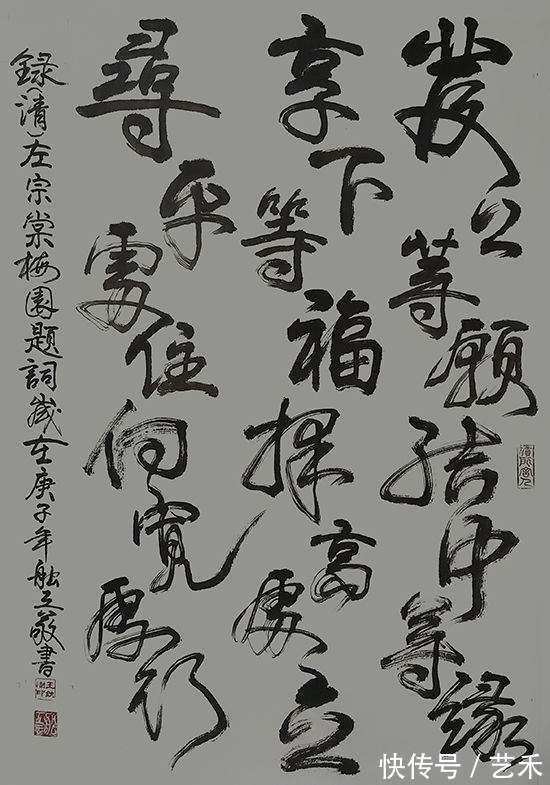 發上等願結中等緣
享下等福擇高處立
尋平處住向寬處行
錄(清)左宗棠梅園題詞歲在庚子年敬書
快传号 / 艺禾